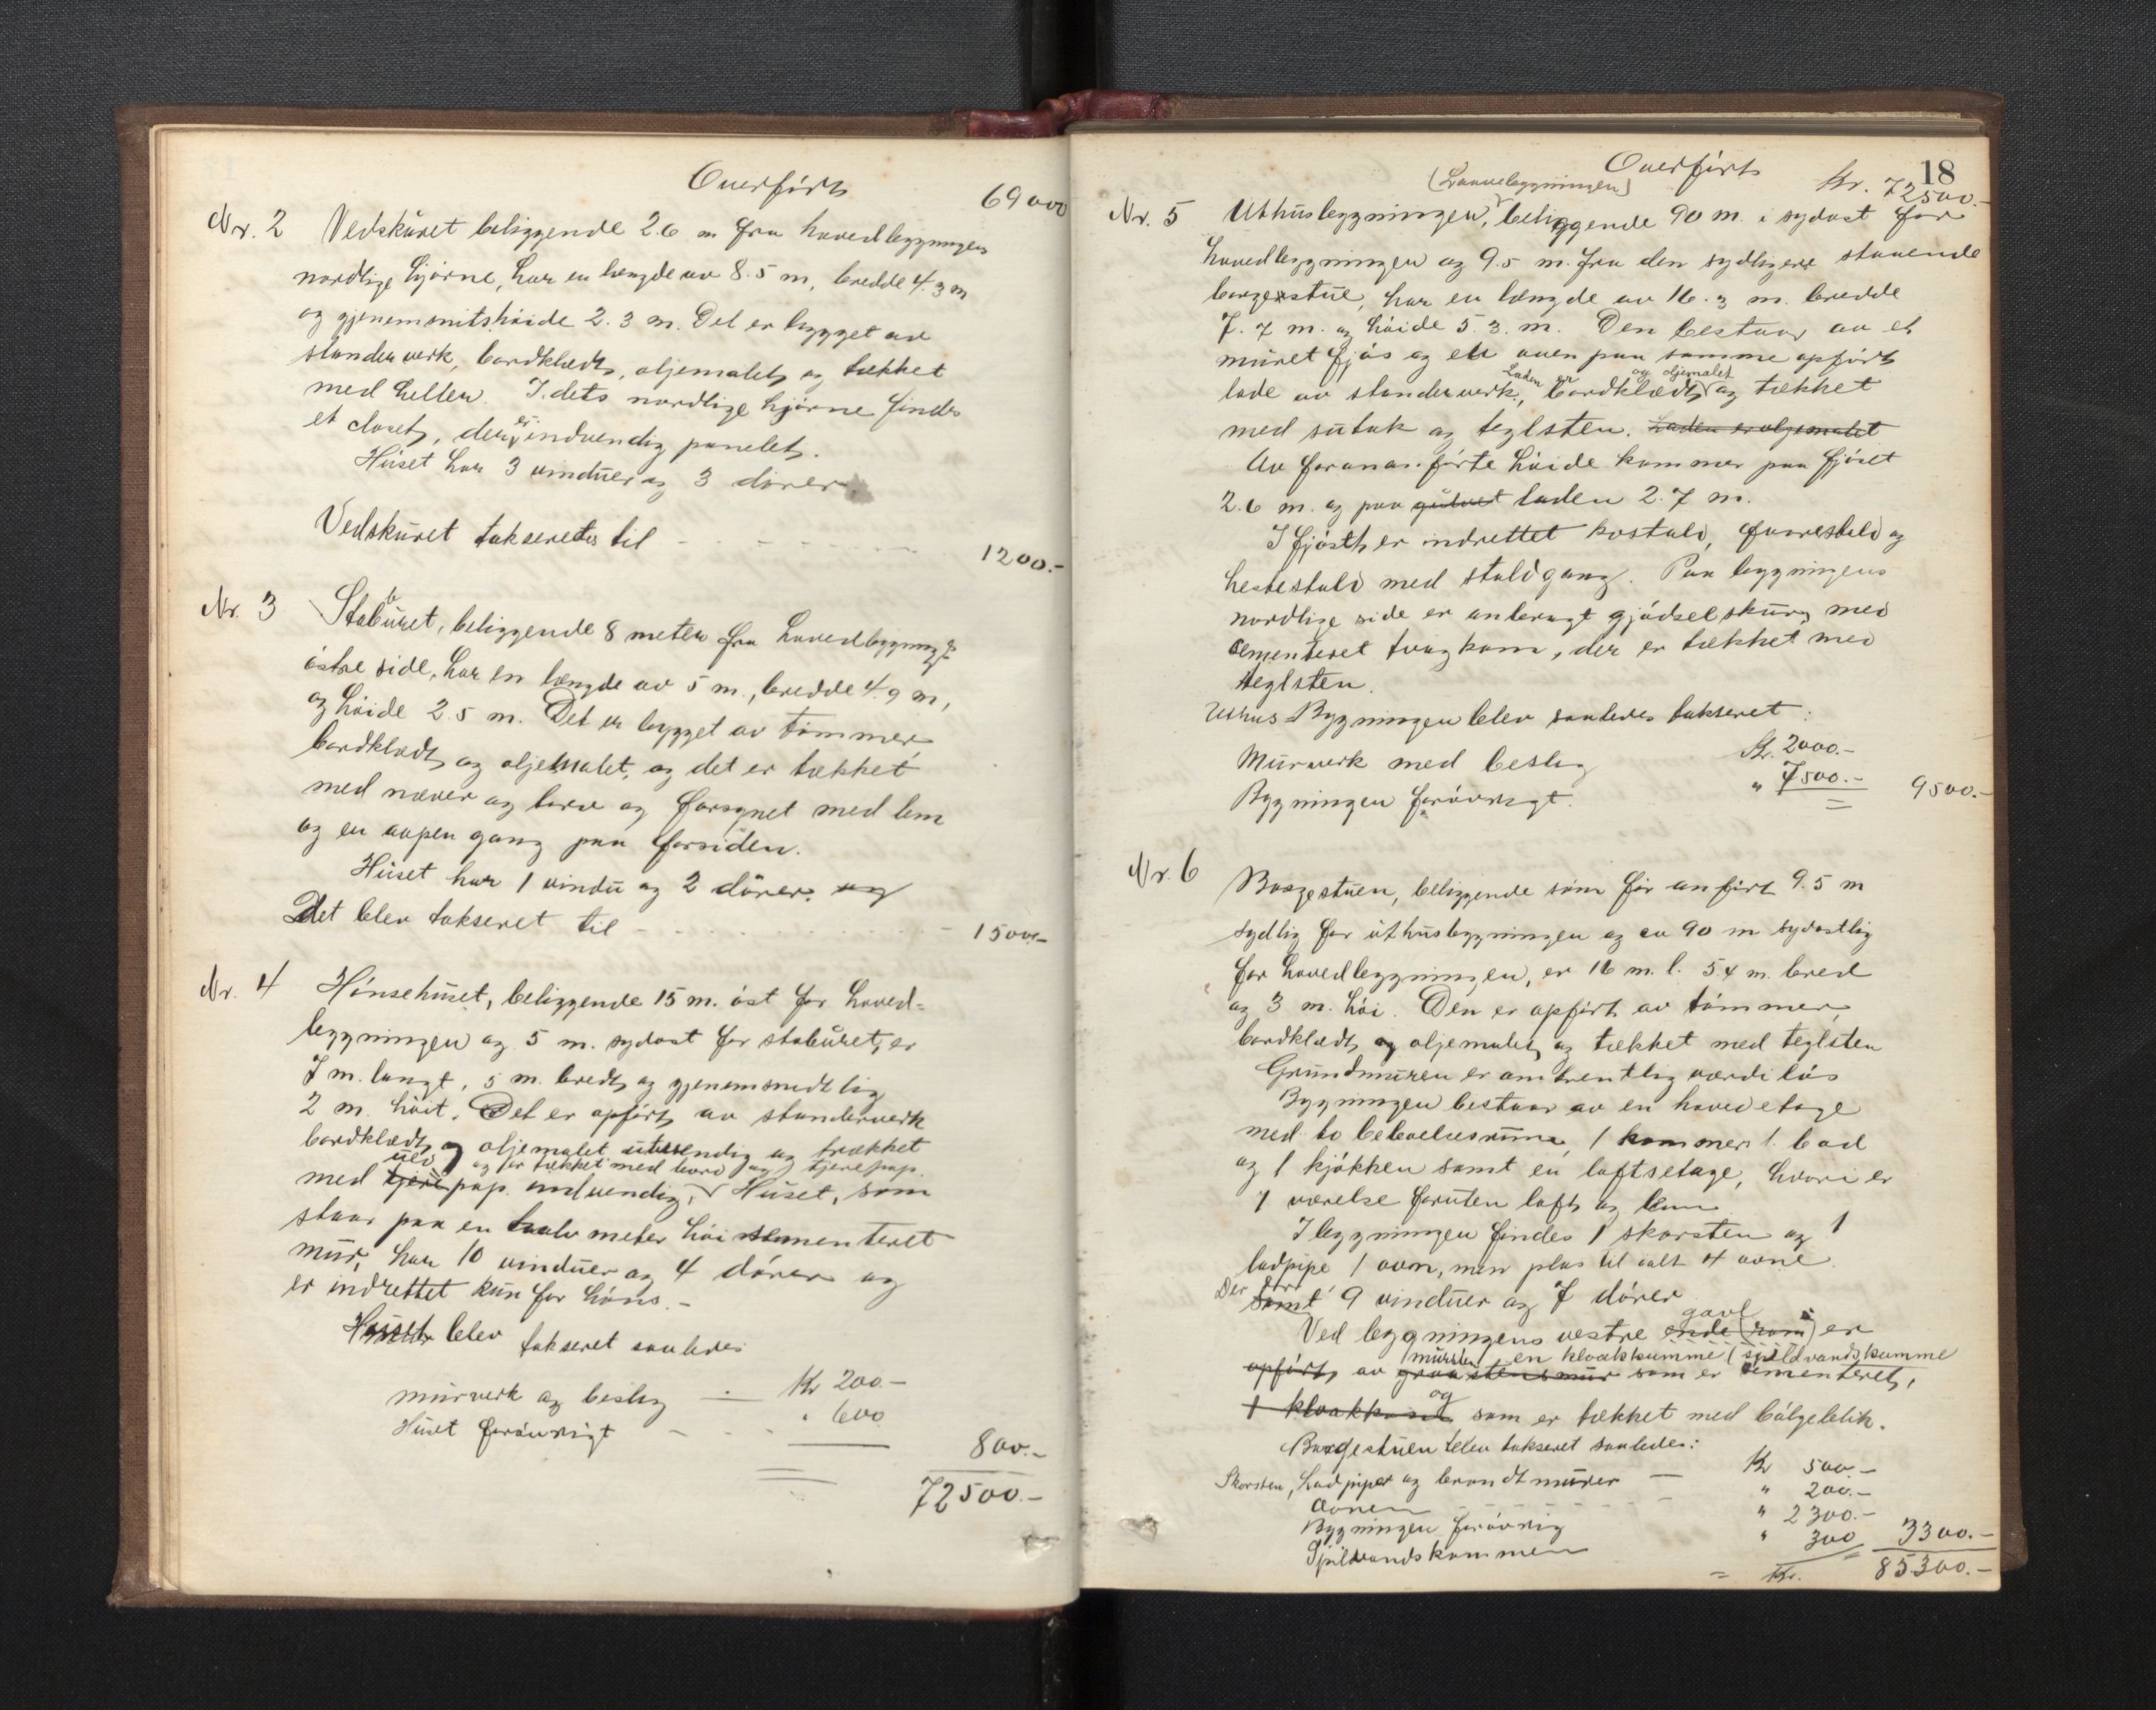 Overført 69000
Nr. 2 Vedskuret beliggende 2.6 m fra hovedbygningens
nordlige hjørne, har en længde av 8.5 m, bredde 4.3 m
og gjenemsnitshøide 2.3 m. Det er bygget av
stenderverk, bordklædt, oljemalet og tækket
med heller. I dets nordlige hjørne findes
et closet, der er indvendig panelet.
Huset har 3 vinduer og 3 dører.
Vedskuret takseredes til 1200.-
Nr. 3 Stabburet, beliggende 8 meter fra hovedbygnings
østre side, har en længde av 5 m., bredde 4.9 m,
og høide 2.5 m. Det er bygget av tømmer,
bordklædt og oljemalet, og det er tækket
med næver og torv og forsynet med lem
og en aapen gang paa forsiden.
Huset har 1 vindu og 2 dører. og
Det blev takseret til 1500.-
Nr. 4 Hønsehuset, beliggende 15 m. øst for hoved-
bygningen og 5 m. sydøst for staburet, er
7 m. langt, 5 m. bredt og gjenemsnedtlig
2 m. høit. Det er opført av stenderverk
bordklædt og oljemalet utvendig og trækket
uld og er tækket med bord og tjerepap.
med tjere pap. indvendig. Huset, som
staar paa en halv meter høi sementeret
mur, har 10 vinduer og 4 dører og
er indrettet kun for høns.-
Huset blev takseret saaledes
murverk og beslag - Kr 200.-
Huset forøvrigt - - " 600 800.-
72500.-
18
Overført Kr. 72500.-
(Laavebygningen)
Nr. 5 Uthusbygningen, beliggende 90 m. i sydøst for
hovedbygningen og 9.5 m. fra den sydligere staaende
borgestue, har en længde av 16.3 m. bredde
7.7 m. og høide 5.3. m. Den bestaar av et
muret fjøs og en oven paa samme opført
Laden er og oljemalet
lade av stenderverk, bordklædt og tækket
med sutak og teglsten. Laden er oljemalet
Av forananførte høide kommer paa fjøset
2.6 m. og paa gulvet laden 2.7 m.
I fjøset er indrettet kostald, faarestald og
hestestald med staldgang. Paa bygningens
nordlige side er anbragt gjødselskur, med
sementeret trugkom, der er tækket med
teglsten.
Uthus Bygningen blev saaledes takseret:
Murverk med beslag Kr. 2000.-
Bygningen forøvrigt. " 7500.- 9500.-
Nr. 6 Borgestuen, beliggende som før anført 9.5 m
sydlig for uthusbygningen og ca 90 m sydøstlig
for hovedbygningen, er 16 m. l. 5.4 m. bred
og 3 m. høi. Den er opført av tømmer,
bordklædt og oljemalet og tækket med teglsten
Grundmuren er omtrentlig værdiløs
Bygningen bestaar av en hovedetage
med to beboelsesrum, 1 kammer 1. bad
og 1 kjøkken samt en loftsetage, hvori er
1 værelse foruten loft og lem
I bygningen findes 1 skorsten og 1
ladpipe 1 ovn, men plas til ialt 4 ovne.
Der er samt 9 vinduer og 7 dører
gavl
Ved bygningens vestre ende er
mursten en kloakkumme (spildvandskumme
opført av graastensmur som er sementeret,
og
1 kloakk som er tækket med bølgeblik.
Borgestuen blev takseret saaledes:
Skorsten, ladpiper og brandtmurer - Kr 500.-
Ovnen " 200.-
Bygningen forøvrig " 2300.-
Spildvandskommen " 300 3300.-
= Kr. 85300.-